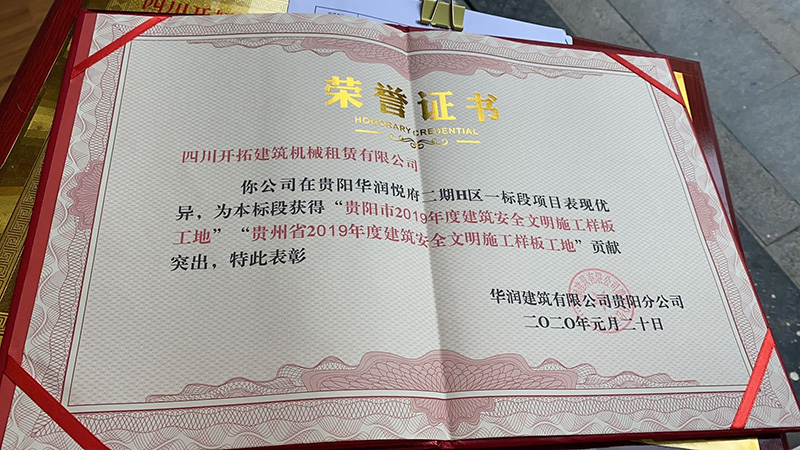 四川开拓
荣誉证书
HONORARY CREDENTIAL
四川开拓建筑机械租赁有限公司
你公司在贵阳华润悦府二期H区一标段项目表现优
异，为本标段获得“贵阳市2019年度建筑安全文明施工样板
工地”“贵州省2019年度建筑安全文明施工样板工地”贡献
突出，特此表彰
华润建筑有限公司贵阳分公司
二〇二〇年元月二十日